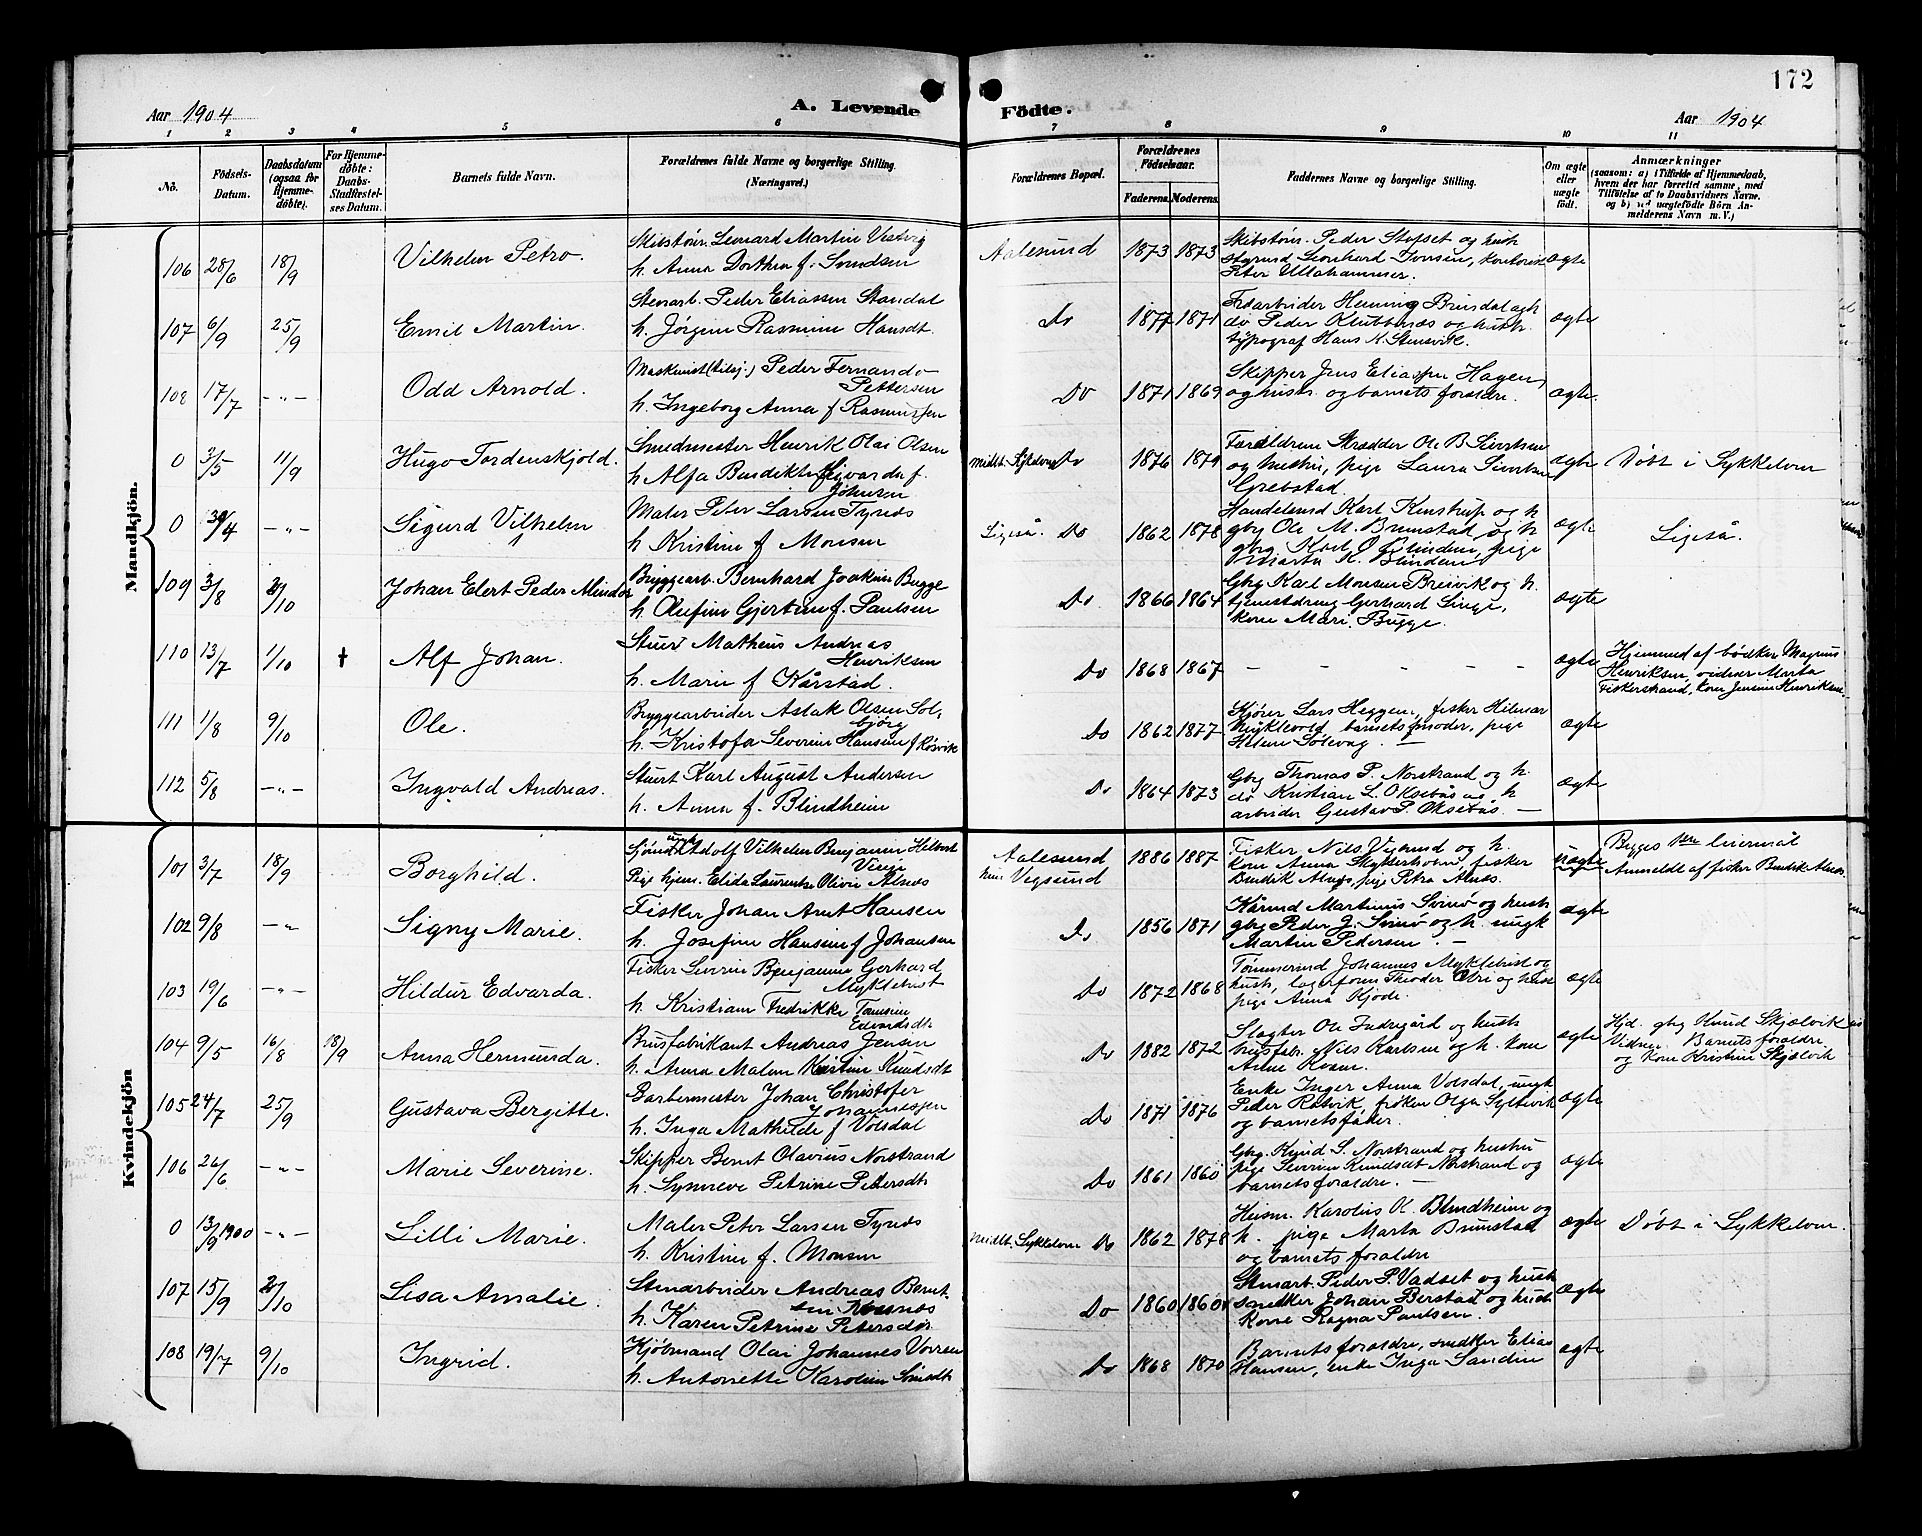 172
Aar 1904
A. Levende Födte.
Aar 1904
1 2 3 4 5 6 7 8 9 10 11
No.
Födsels-Datum.
Daabsdatum (ogsaa for Hjemme-döbte).
For Hjemme-döbte: Daabs-Stadfæstel-ses Datum.
Barnets fulde Navn.
Forældrenes fulde Navne og borgerlige Stilling. (Næringsvei.)
Forældrenes Bopæl.
Forældrenes Födselsaar.
Faderens. Moderens.
Faddernes Navne og borgerlige Stilling.
Om ægte eller uægte födt.
Anmærkninger
(saasom: a) i Tilfælde af Hjemmedaab, hvem der har forrettet samme, med Tilföielse af to Daabsvidners Navne, og b) ved uægtefödte Börn Anmelderens Navn m. V.)
Mandkjön.
106 28/6 18/9 Vilhelm Petro.
Skibstøm. Leonard Martin Vestvig
h. Anna Dorthea f. Svendsen
Aalesund 1873 1873
Skibstøm. Peder Stofset og hust
styrmd Leonhard Jonsen, kontorist
Peter Ullahammer.
ægte
107 6/9 25/9 Emil Martin.
Stenarb. Peder Eliassen Standal
h. Jørgine Rasmine Hansdt.
Do 1877 1871
og h
do Peder Klubbenes og hustr.
typograf Hans K. Stensvik.
ægte
108 17/7 -"- Odd Arnold.
Maskinist Peder Fernando
Pettersen
h. Ingeborg Anna f Rasmussen
Do 1871 1869
Skipper Jens Eliassen Hagen
og hustr. og barnets forældre.
ægte
0 3/5 11/9 Hugo Tordenskjold.
Smedmester Henrik Olai Olsen
h. Alfa Bendikte f.
Johnsen
midlt. Sykkelven Do 1876
Forældrene Skrædder Ole B Sivertsen
og hustru, pige Laura Sivertsen
Grebstad.
ægte
Døbt i Sykkelven
0 30/4 -"- Sigurd Vilhelm
Maler Peter Larsen Tynes
h Kristine f Monsen
Ligeså. Do 1862 1878
Handelsmd Karl Kinstrup og h
gbrg Ole M. Brunstad og h
ægte
Ligeså.
109 3/8 2/10 Johan Elert Peder Alindor
Bryggearb. Bernhard Joakim Bugge
h Olufine Gjertine f. Paulsen
Do. 1866 1864
Gbrg Karl Monsen Breivik og h.
tjenestdreng Gerhard Singe,
kone Mari Bugge.
ægte
110 13/7 1/10 † Alf Johan.
Stuert Matheus Andreas
Henriksen
h. Marie f Kårstad.
Do 1868 1867
- - - - -
ægte
Hjemmed af bødker Magnus
Henriksen, vidner Marta
Fiskerstrand, kone Jensine Henriksen.
111 1/8 9/10 Ole.
Bryggearbeider Aslak Olsen Sol-
bjørg
h. Kristofa Severine Hansen f Røsvik
Do 1862 1877
Kjører Lars Heggen, fisker Hilmar
Myklevold barnets moder, pige
Helene Solevåg. —
ægte
112 5/8 -"- Ingvald Andreas.
Stuert Karl August Andersen
h. Anna f. Blindheim
Do 1864 1873
Gbrg Thomas P. Norstrand og h.
do Kristian L. Oksebås og h
arbeider Gustav P. Oksebås. —
ægte
Kvindekjön
101 3/7 18/9 Borghild.
Sjømd ungk Adolf Vilhelm Benjamin Hilbert
Pige hjem. Elida Laurentse Olivie Alnes
Aalesund
Vegsund
1886 1887
Fisker Nils Vegsund og h.
kone Anna Slyngerholm, fisker
Bendik Alnes, pige Petra Alnes.
uægte
Begges 1ste leiermål
Anmeldt af fisker Bendik Alnes.
102 9/8 -"- Signy Marie.
Fisker Johan Arnt Hansen
h. Josefine Hansine f Johansen
Do 1856 1871
Kårmd Martinus Svinø og hust
gbrg Peder J. Svinø og h. ungk
Martin Pedersen. —
ægte
103 19/6 -"- Hildur Edvarda.
Fisker Severin Benjamin Gerhard
Myklebust
h. Kristiane Fredrikke Tomine
Edvardsdt.
Do 1872 1868
Tømmermd Johannes Myklebust og
hust, lagerform Theodor Ødri og hust
pige Anna Kjode.
ægte
104 9/5 16/8 18/9 Anna Hermunda.
Brusfabrikant Andreas Jensen
h. Anna Malene Kristine Knudsdt
Do 1882 1872
Slagter Ole Fudregård og hust
brusfabr. Nils Karlsen og h. kone
ægte
Hjd. gbrg Knud Skjælvik
Vidner. Barnets forældre
og kone Kristine Skjelvik
105 24/7 25/9 Gustava Bergitte.
Barbermester Johan Christofer
Johannessen
h. Inga Mathilde f Volsdal
Do 1871 1876
Enke Inger Anna Volsdal, ungk
Peder Ratvik, frøken Olga Syltevik
og barnets fader.
ægte
106 26/6 -"- Marie Severine.
Skipper Bernt Olavius Norstrand
h. Synneve Petrine Petersdt.
Do 1861 1860
Gbrg. Knud S. Norstrand og hustru
pige Severine Knudsdt Norstrand og
barnets forældre. —
ægte
0 13/9 1900 -"- Lilli Marie.
Maler Peter Larsen Tynes
h. Kristine f. Monsen
midlt. Sykkelven Do 1862 1878
Husm. Karolus K. Blindheim og
h. pige Marta Brunstad
og barnets forældre
ægte
Døbt i Sykkelven.
107 15/9 2/10 Lisa Amalie.
Stenarbeider Andreas Bernt-
sen
h. Karen Petrine Petersdt.
Do 1860 1860
Stenarb. Peder P. Vadset og hust
snedker Johan Berstad og hust
kone Ragna Paulsen.
ægte
108 19/7 9/10 Ingrid.
Kjøbmand Olai Johannes Vorren
h. Antonette Karoline
Do 1868 1870
Barnets forældre, snedker Elias
Hansen, enke Inga Sanden
ægte